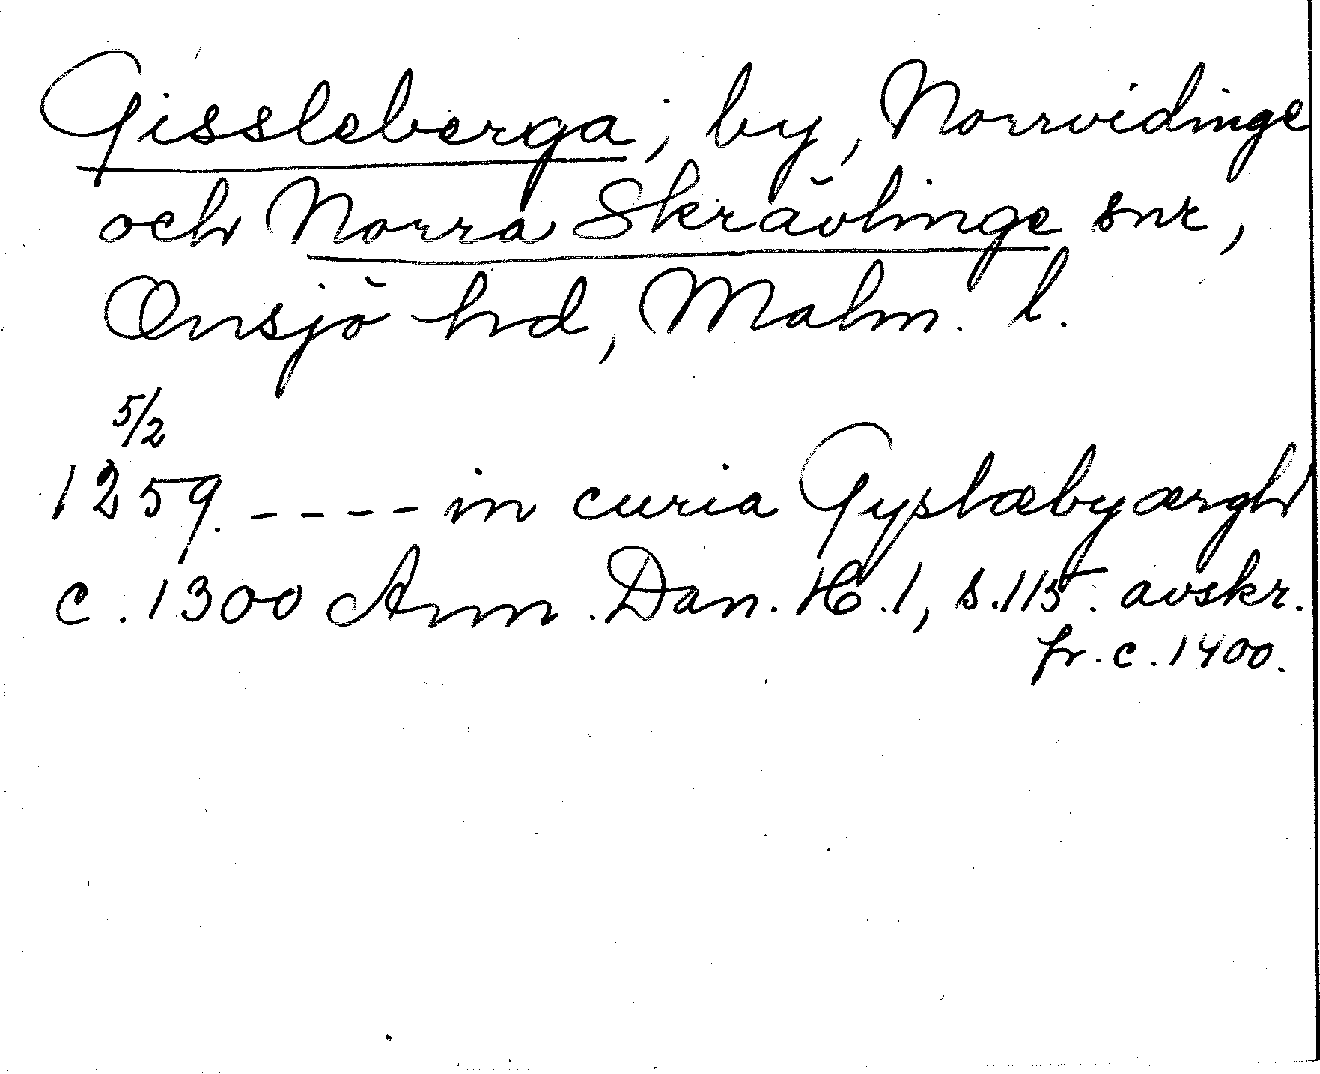 Gissleberga, by, Norrvidinge
och Norra Skrävlinge snr,
Onsjö hd, Malm. l.
5/2
1259. - - - - in curia Gyslæbyærgh
c. 1300 Ann. Dan. H. 1, s. 115. avskr.
fr. c. 1400.